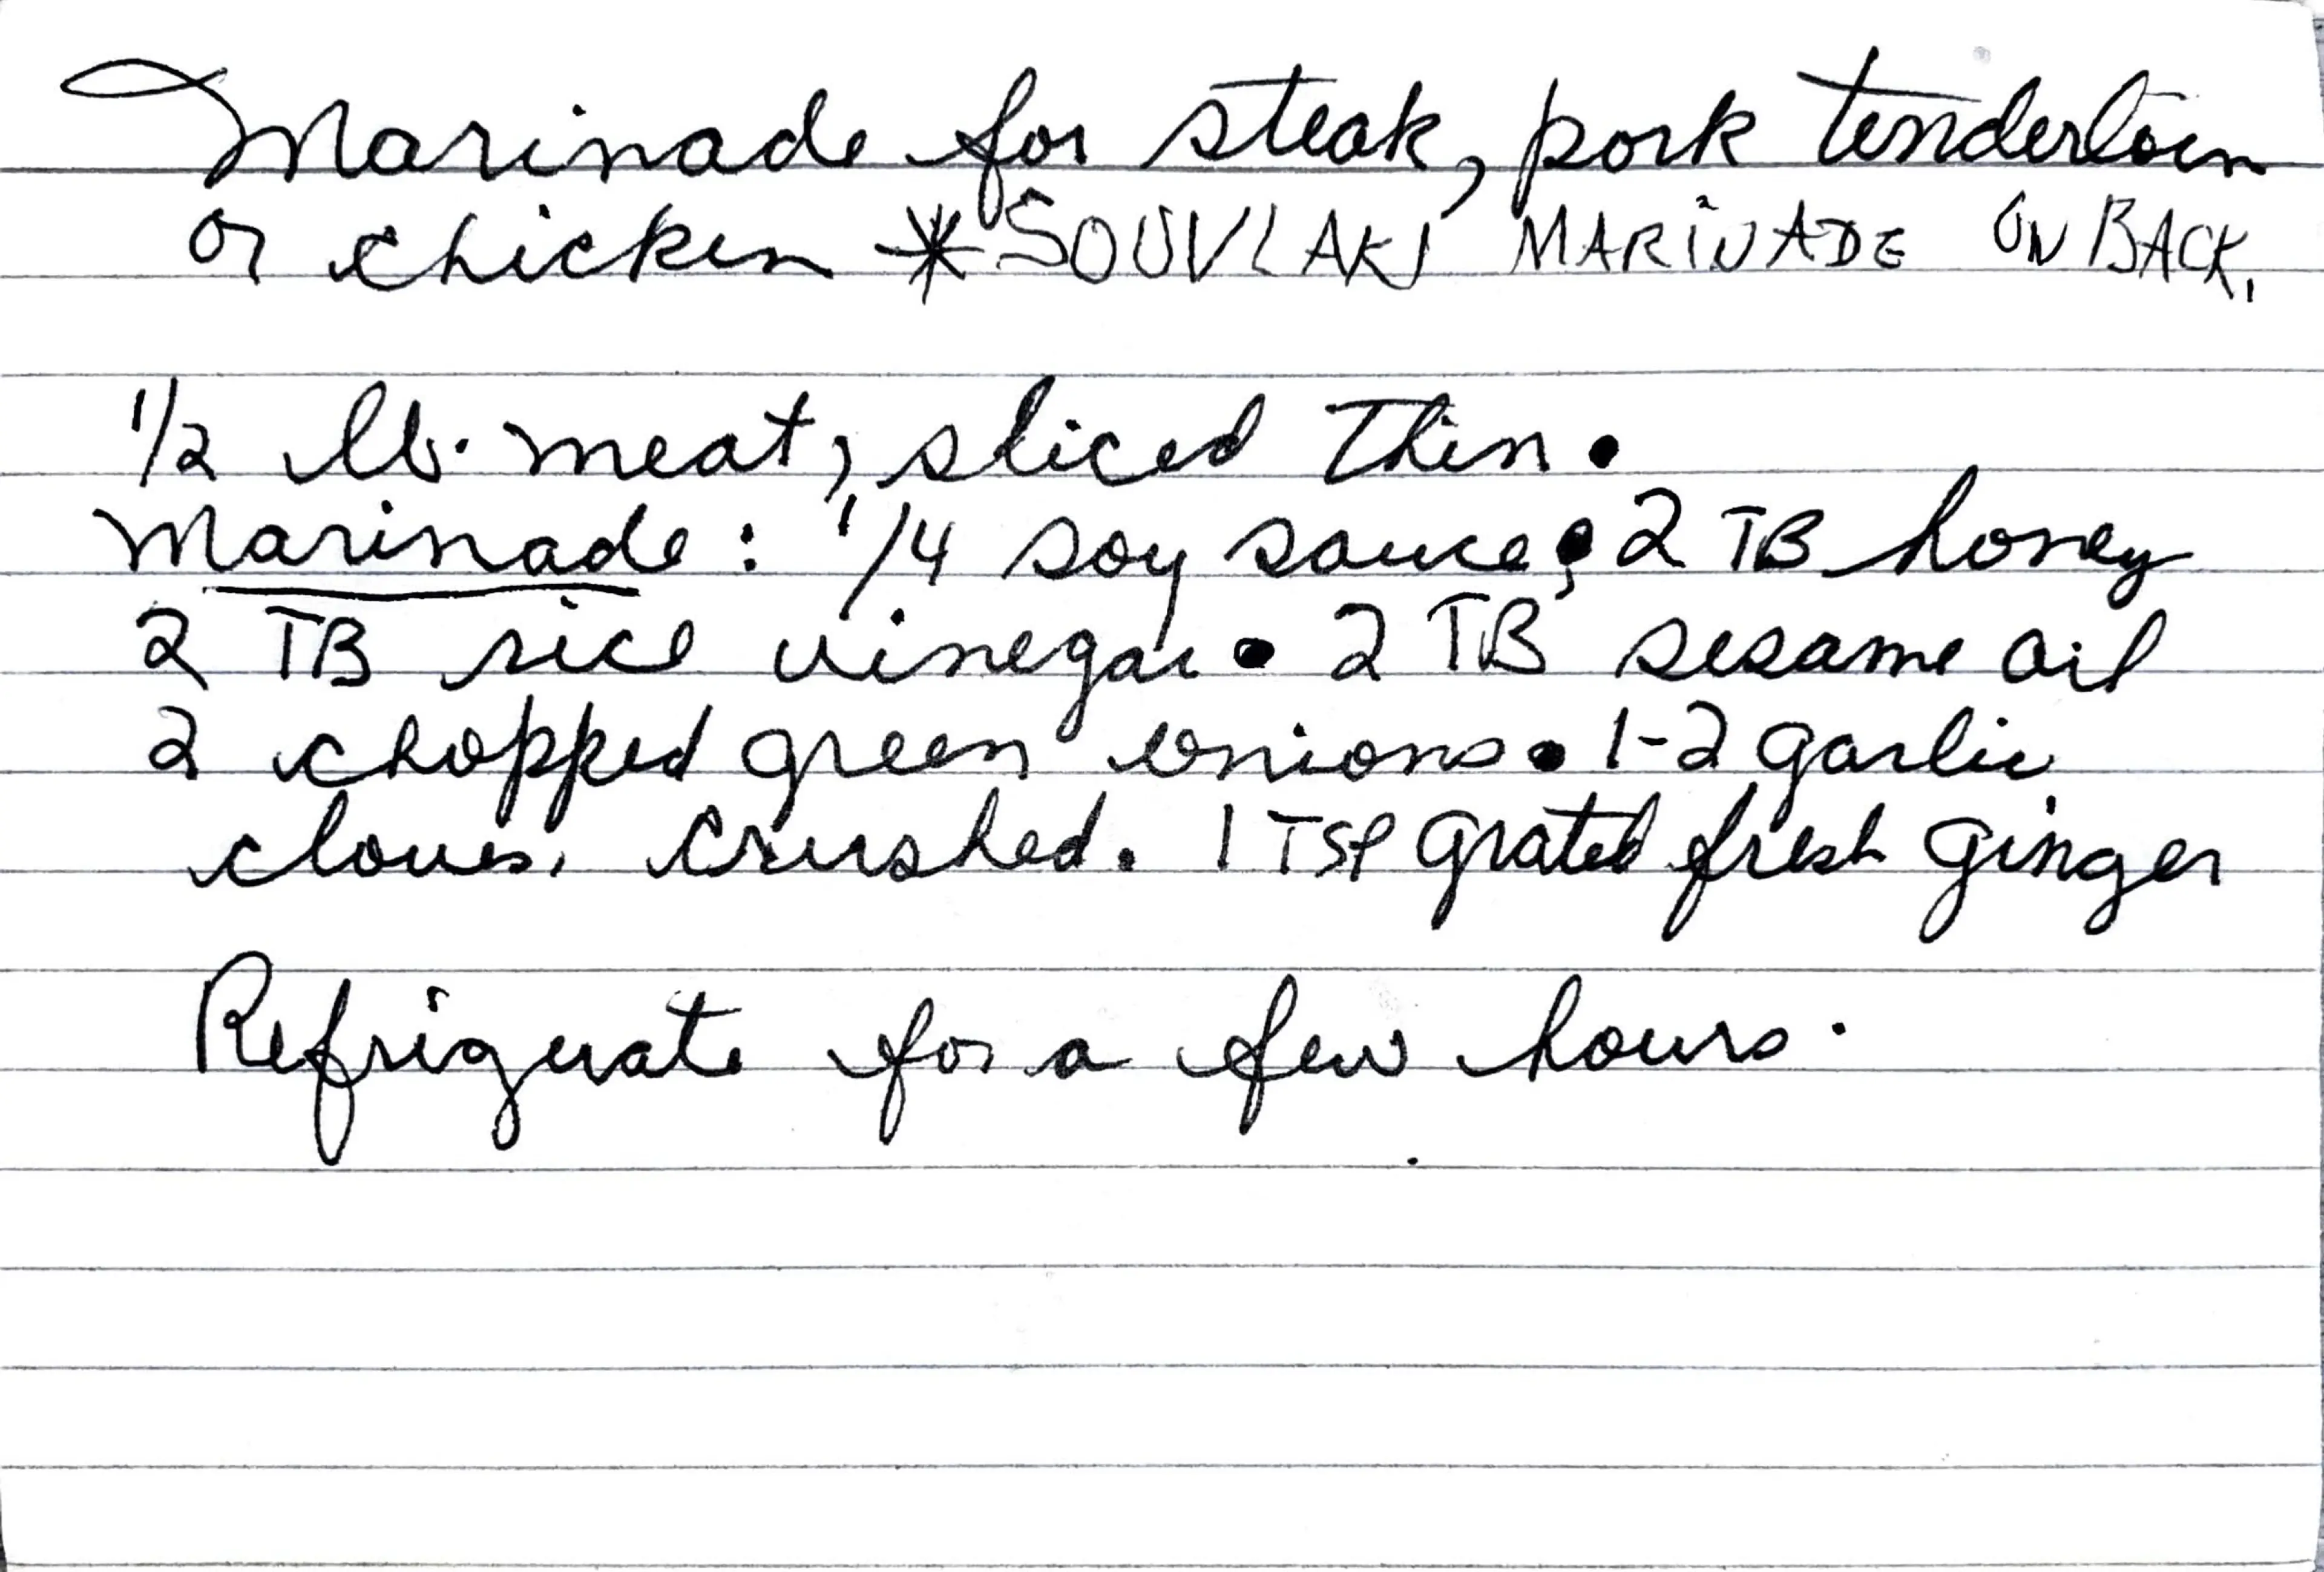 Marinade for steak, pork tenderloin
or chicken *SOUVLAKI MARINADE ON BACK.
1/2 lb. meat, sliced thin.
Marinade: 1/4 soy sauce • 2 TB honey
2 TB rice vinegar • 2 TB sesame oil
2 chopped green onions • 1-2 garlic
cloves, crushed. 1 TSP grated fresh ginger
Refrigerate for a few hours.